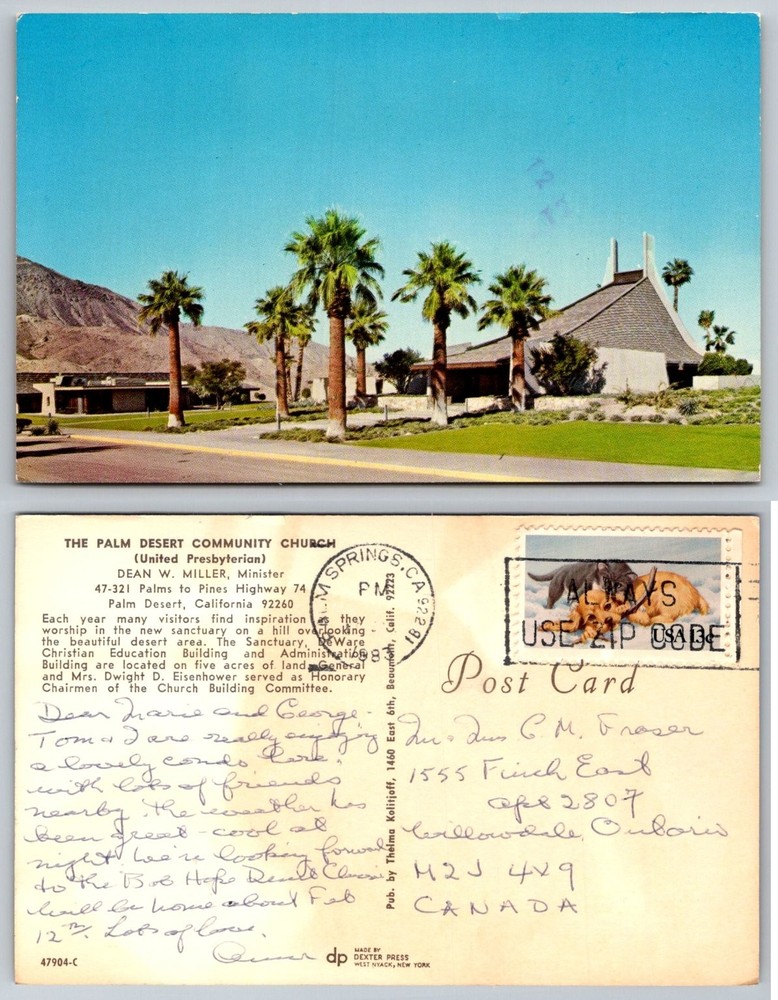 12
THE PALM DESERT COMMUNITY CHURCH
(United Presbyterian)
DEAN W. MILLER, Minister
47-321 Palms to Pines Highway 74
Palm Desert, California 92260
Each year many visitors find inspiration as they
worship in the new sanctuary on a hill overlooking
the beautiful desert area. The Sanctuary, DeWare
Christian Education Building and Administration
Building are located on five acres of land. General
and Mrs. Dwight D. Eisenhower served as Honorary
Chairmen of the Church Building Committee.
Dear Marie and George-
Tom & I are really enjoying
a lovely condo here,
with lots of friends
nearby. The weather has
been great - cool at
night. We're looking forward
to the Bob Hope Desert Classic
Will be home about Feb
12th. Lots of love,
47904-C
dp
MADE BY
DEXTER PRESS
WEST NYACK, NEW YORK
Pub. by Thelma Kolitjoff, 1460 East 6th, Beaumont, Calif. 92223
PALM SPRINGS, CA 922
PM
ALWAYS
USE ZIP CODE
USA 13c
Post Card
Mr & Mrs C. M. Fraser
1555 Finch East
apt 2807
Willowdale, Ontario
M2J 4X9
CANADA